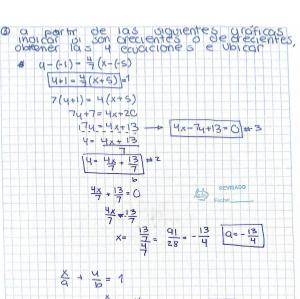 ② a partir de las siguientes gráficas,
indicar si son crecientes o decrecientes,
obtener las 4 ecuaciones e ubicar
* y-(-1) = 4/7 (x-(-5)
y+1 = 4/7 (x+5) *1
7(y+1) = 4(x+5)
7y+7 = 4x+20
7y = 4x+13 → 4x-7y+13=0 * 3
y = 4x+13/7
y = 4x/7 + 13/7 * 2
b
4x/7 + 13/7 = 0
4x/7 = -13/7
REVISADO
Fecha:
x = 13/7 / 4/7 = 91/28 = -13/4 a = -13/4
x/a + y/b = 1
x